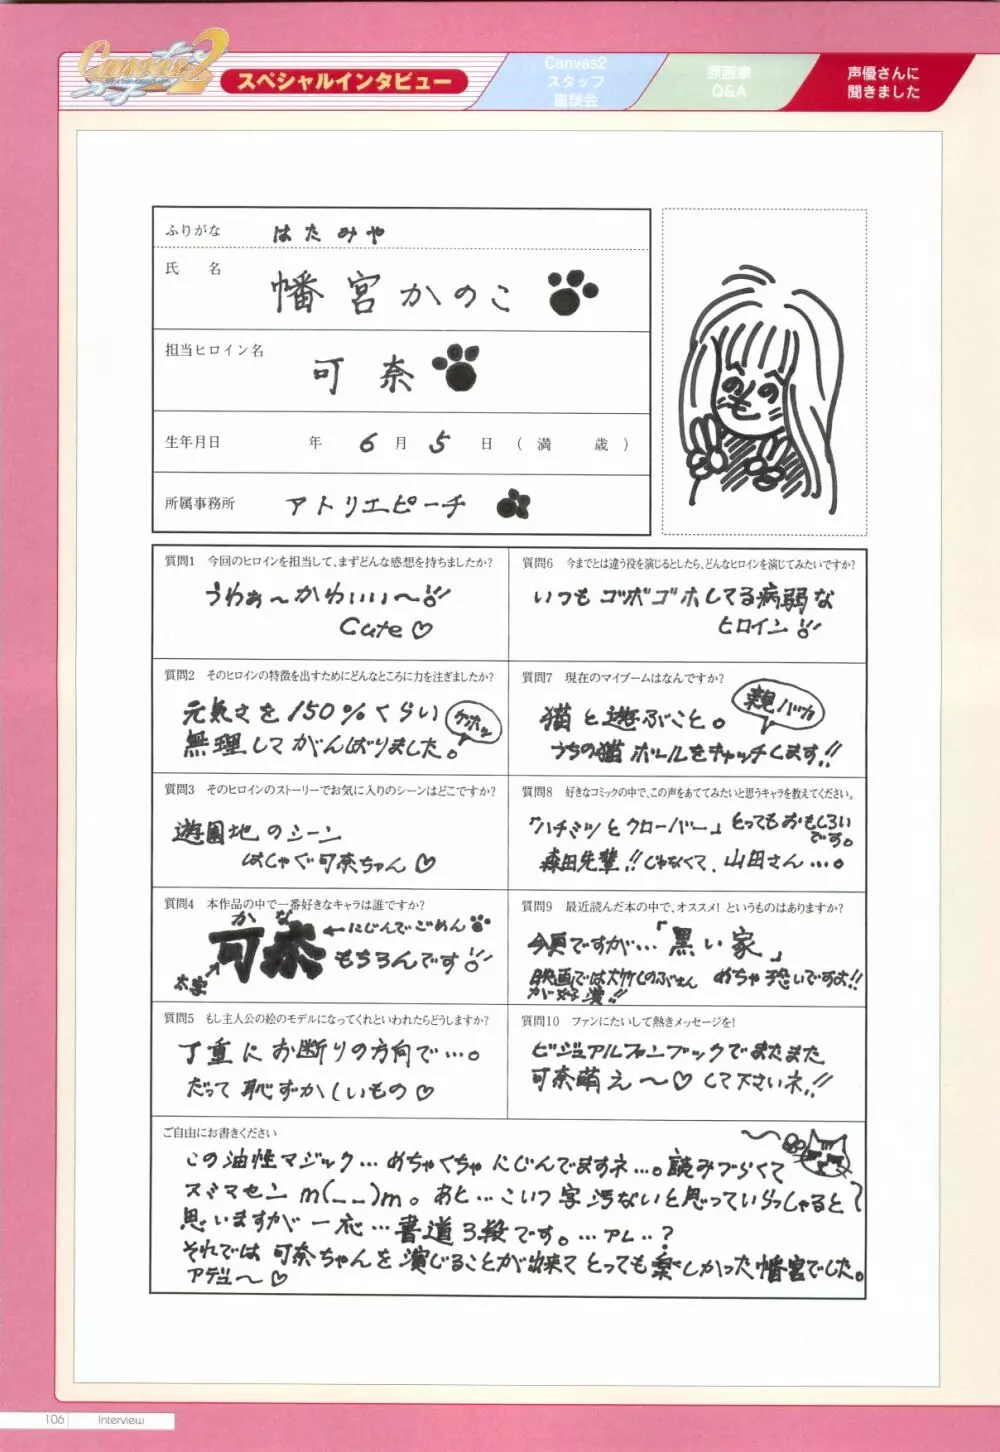 Canvas2
スペシャルインタビュー
Canvas2
スタッフ
座談会
原画家
Q&A
声優さんに
聞きました
ふりがな はたみや
氏 名 幡宮かのこ
担当ヒロイン名 可奈
生年月日 年 6月 5日 (満 歳)
所属事務所 アトリエピーチ
質問1 今回のヒロインを担当して、まずどんな感想を持ちましたか?
うわぁ〜かわいい〜!!
Cute♡
質問2 そのヒロインの特徴を出すためにどんなところに力を注ぎましたか?
元気さを150%くらい
無理してがんばりました。
ゲホッ
質問3 そのヒロインのストーリーでお気に入りのシーンはどこですか?
遊園地のシーン
はしゃぐ可奈ちゃん♡
質問4 本作品の中で一番好きなキャラは誰ですか?
かな
可奈
←にじんでごめん
もちろんです!!
太字
質問5 もし主人公の絵のモデルになってくれといわれたらどうしますか?
丁重にお断りの方向で…。
だって恥ずかしいもの♡
質問6 今までとは違う役を演じるとしたら、どんなヒロインを演じてみたいですか?
いつもゴッボゴホしてる病弱な
ヒロイン!!
質問7 現在のマイブームはなんですか?
猫と遊ぶこと。
親バカ
うちの猫ボールをキャッチします!!
質問8 好きなコミックの中で、この声をあててみたいと思うキャラを教えてください。
「ハチミツとクローバー」とってもおもしろい
です。
森田先輩!!じゃなくて、山田さん…。
質問9 最近読んだ本の中で、オススメ!というものはありますか?
今更ですが…「黒い家」
映画では大竹しのぶさん めちゃ恐いですよ!!
が好演!!
質問10 ファンにたいして熱きメッセージを!
ビジュアルファンブックでまたまた
可奈萌え〜♡して下さいネ!!
ご自由にお書きください
この油性マジック…めちゃくちゃにじんでますネ…。読みづらくて
スミマセンm(__)m。あと…こいつ字汚ないと思っていらっしゃると
思いますが一応…書道3段です。…アレ‥?
それでは可奈ちゃんを演じることが出来てとっても楽しかった幡宮でした。
アデュ〜♡
106 Interview